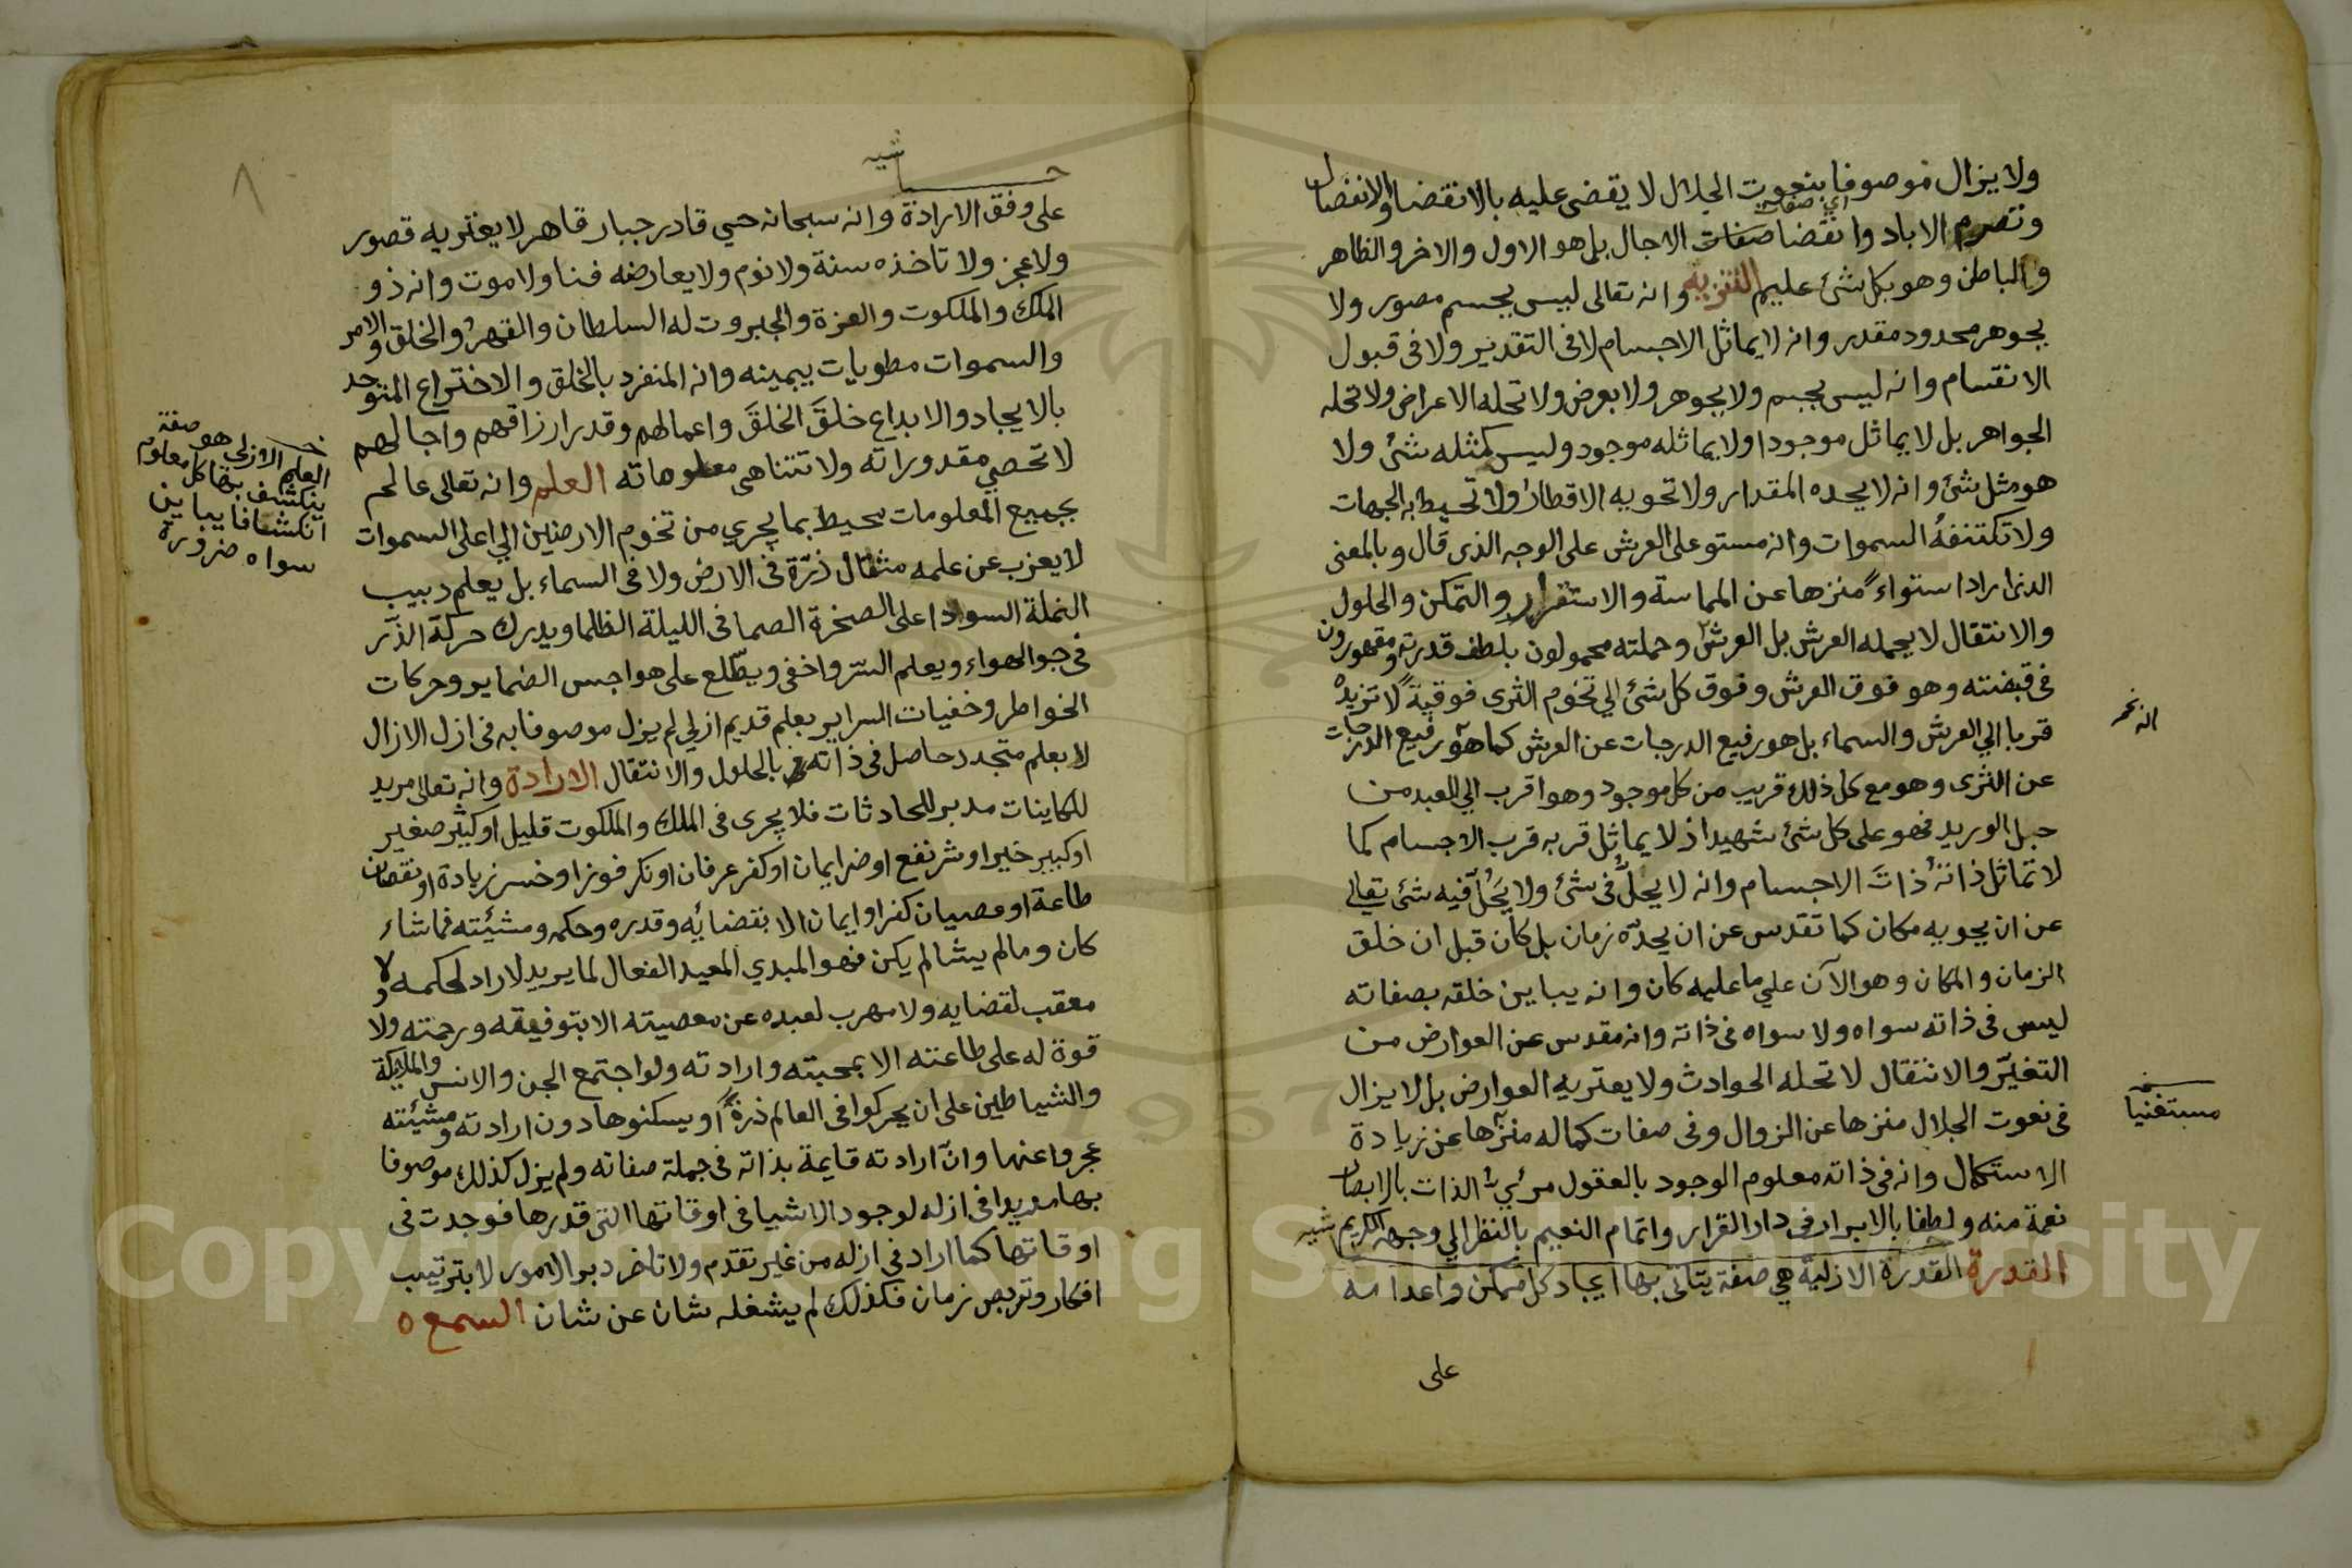 ولا يزال موصوفا بنعوت الجلال لا يقضى عليه بالانقضا والانفصال
وتصرم الاباد وانقضا صفات الاجال بل هو الاول والاخر والظاهر
اي صفات
والباطن وهو بكل شئ عليم التنزيه وانه تعالى ليس بجسم مصور ولا
بجوهر محدود مقدر وانه لا يماثل الاجسام لا فى التقدير ولا فى قبول
الانقسام وانه ليس بجسم ولا بجوهر ولا بعرض ولا تحله الاعراض ولا تحله
الجواهر بل لا يماثل موجودا ولا يماثله موجود وليس كمثله شئ ولا
هو مثل شئ وانه لا يحده المقدار ولا تحويه الاقطار ولا تحيط به الجهات
ولا تكتنفه السموات وانه مستو على العرش على الوجه الذى قال وبالمعنى
الذى اراد استواءً منزها عن المماسة والاستقرار والتمكن والحلول
والانتقال لا يحمله العرش بل العرش وحملته محمولون بلطف قدرته ومقهورون
فى قبضته وهو فوق العرش وفوق كل شئ الي تخوم الثرى فوقيةً لا تزيده
قربا الي العرش والسماء بل هو رفيع الدرجات عن العرش كما هو رفيع الدرجات
عن الثرى وهو مع كل ذلك قريب من كل موجود وهو اقرب الي العبد من
حبل الوريد فهو على كل شئ شهيد اذ لا يماثل قربه قرب الاجسام كما
لا تماثل ذاتُه ذاتَ الاجسام وانه لا يحلُّ فى شئ ولا يَحُلّ فيه شئ تعالى
عن ان يحويه مكان كما تقدس عن ان يحدّه زمان بل كان قبل ان خلق
الزمان والمكان وهو الآن علي ما عليه كان وانه يباين خلقه بصفاته
ليس فى ذاته سواه ولا سواه فى ذاته وانه مقدس عن العوارض من
التغيّر والانتقال لا تحله الحوادث ولا يعتريه العوارض بل لا يزال
فى نعوت الجلال منزها عن الزوال وفى صفات كماله منزّها عن زيادة
الاستكمال وانه فى ذاته معلوم الوجود بالعقول مرئي الذات بالابصار
نعمة منه ولطفا بالابرار فى دار القرار واتمام النعيم بالنظر الي وجهه الكريم
حاشيه
القدرة القدرة الازلية هي صفة يتاتى بها ايجاد كل ممكن واعدامه
على
نسخه
مستغنيا
٨
حاشيه
على وفق الارادة وانه سبحانه حي قادر جبار قاهر لا يعتريه قصور
ولا عجز ولا تاخذه سنة ولا نوم ولا يعارضه فنا ولا موت وانه ذو
الملك والملكوت والعزة والجبروت له السلطان والقهر والخلق والامر
والسموات مطويات بيمينه وانه المنفرد بالخلق والاختراع المتوحد
بالايجاد والابداع خلقَ الخلقَ واعمالهم وقدر ارزاقهم واجالهم
لا تحصي مقدوراته ولا تتناهى معلوماته العلم وانه تعالى عالم
بجميع المعلومات محيط بما يجري من تخوم الارضين الي اعلى السموات
لا يعزب عن علمه مثقال ذرّة فى الارض ولا فى السماء بل يعلم دبيب
النملة السوادا على الصخرة الصما فى الليلة الظلما ويدرك حركة الذّر
فى جو الهواء ويعلم السر واخفى ويطّلع على هواجس الضماير وحركات
الخواطر وخفيات السراير بعلم قديم ازلي لم يزل موصوفا به فى ازل الازال
لا بعلم متجدد حاصل فى ذاته بالحلول والانتقال الارادة وانه تعالى مريد
للكاينات مدبر للحادثات فلا يجرى فى الملك والملكوت قليل او كثير صغير
او كبير خير او شر نفع او ضر ايمان او كفر عرفان او نكر فوز او خسر زيادة او نقصان
طاعة او عصيان كفر او ايمان الا بقضائه وقدره وحكمه ومشيئته فما شاء
كان وما لم يشا لم يكن فهو المبدي المعيد الفعال لما يريد لا راد لحكمه ولا
معقب لقضايه ولا مهرب لعبده عن معصيته الا بتوفيقه ورحمته ولا
قوة له على طاعته الا بمحبته وارادته ولو اجتمع الجن والانس والملايكة
والشياطين على ان يحركوا فى العالم ذرةً او يسكنوها دون ارادته ومشيئته
عجزوا عنها وانّ ارادته قايمة بذاته فى جملة صفاته ولم يزل كذلك موصوفا
بها مريدا فى ازله لوجود الاشيا فى اوقاتها التى قدرها فوجدت فى
اوقاتها كما اراد فى ازله من غير تقدم ولا تاخر دبر الامور لا بترتيب
افكار وتربص زمان فكذلك لم يشغله شان عن شان السمع ٥
العلم الازلى هو صفة
ينكشف بها كل معلوم
انكشافا يباين
سواه ضرورة
Copyright © King Saud University
1957